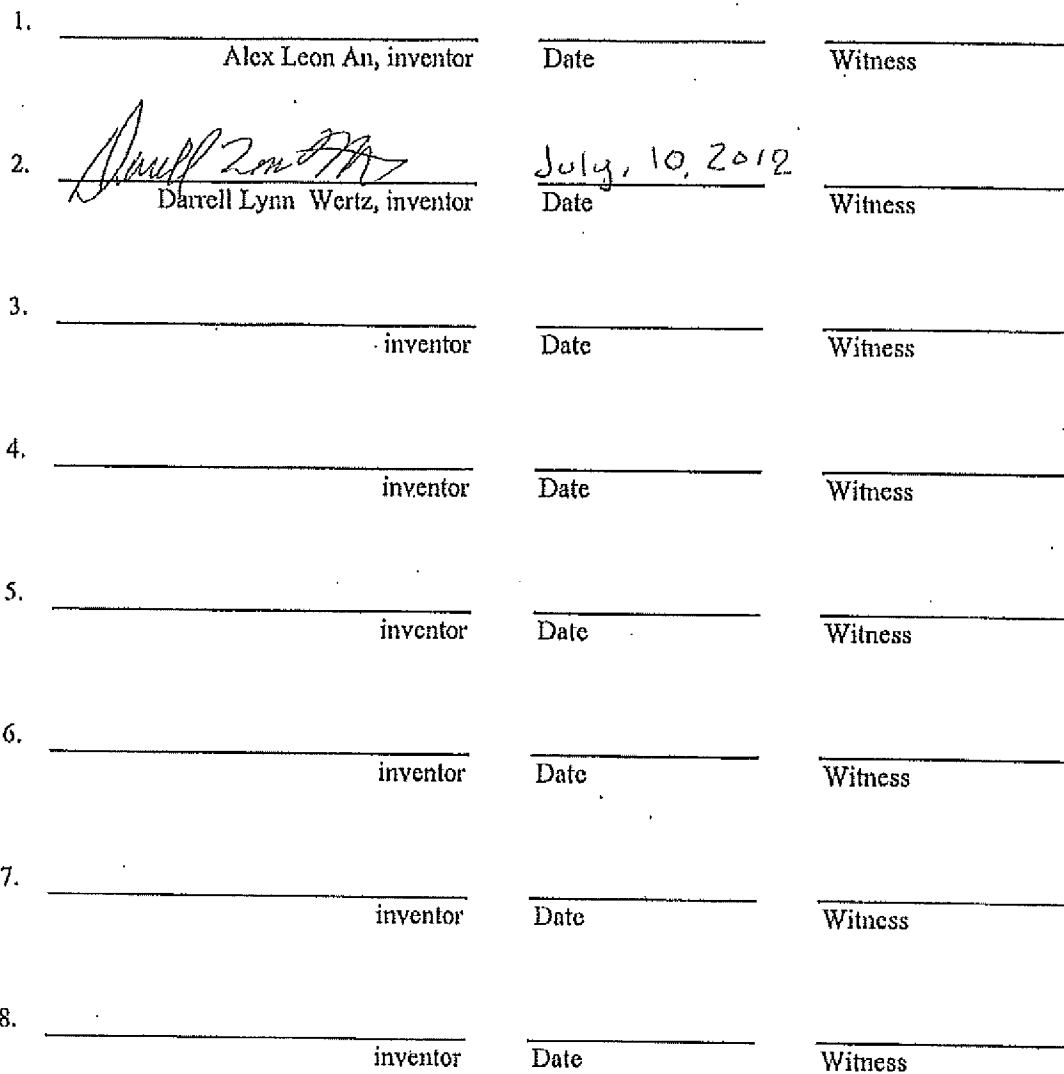 1.
Alex Leon An, inventor Date Witness
2. Darrell Lynn July, 10, 2012
Darrell Lynn Wertz, inventor Date Witness
3.
inventor Date Witness
4.
inventor Date Witness
5.
inventor Date Witness
6.
inventor Date Witness
7.
inventor Date Witness
8.
inventor Date Witness